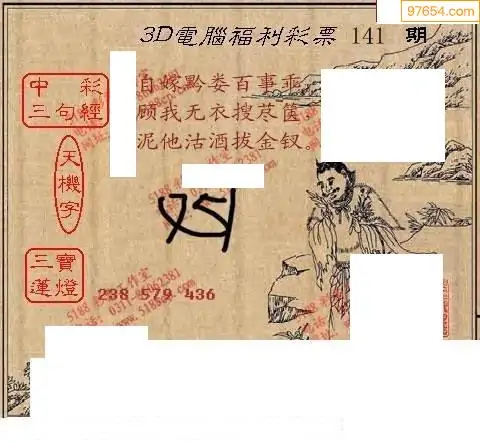 97654.com
3D電腦福利彩票 141 期
中彩
三句經
自嫁黔娄百事乖
顾我无衣搜荩箧。
泥他沽酒拔金钗。
天機字
三寶
蓮燈
238 579 436